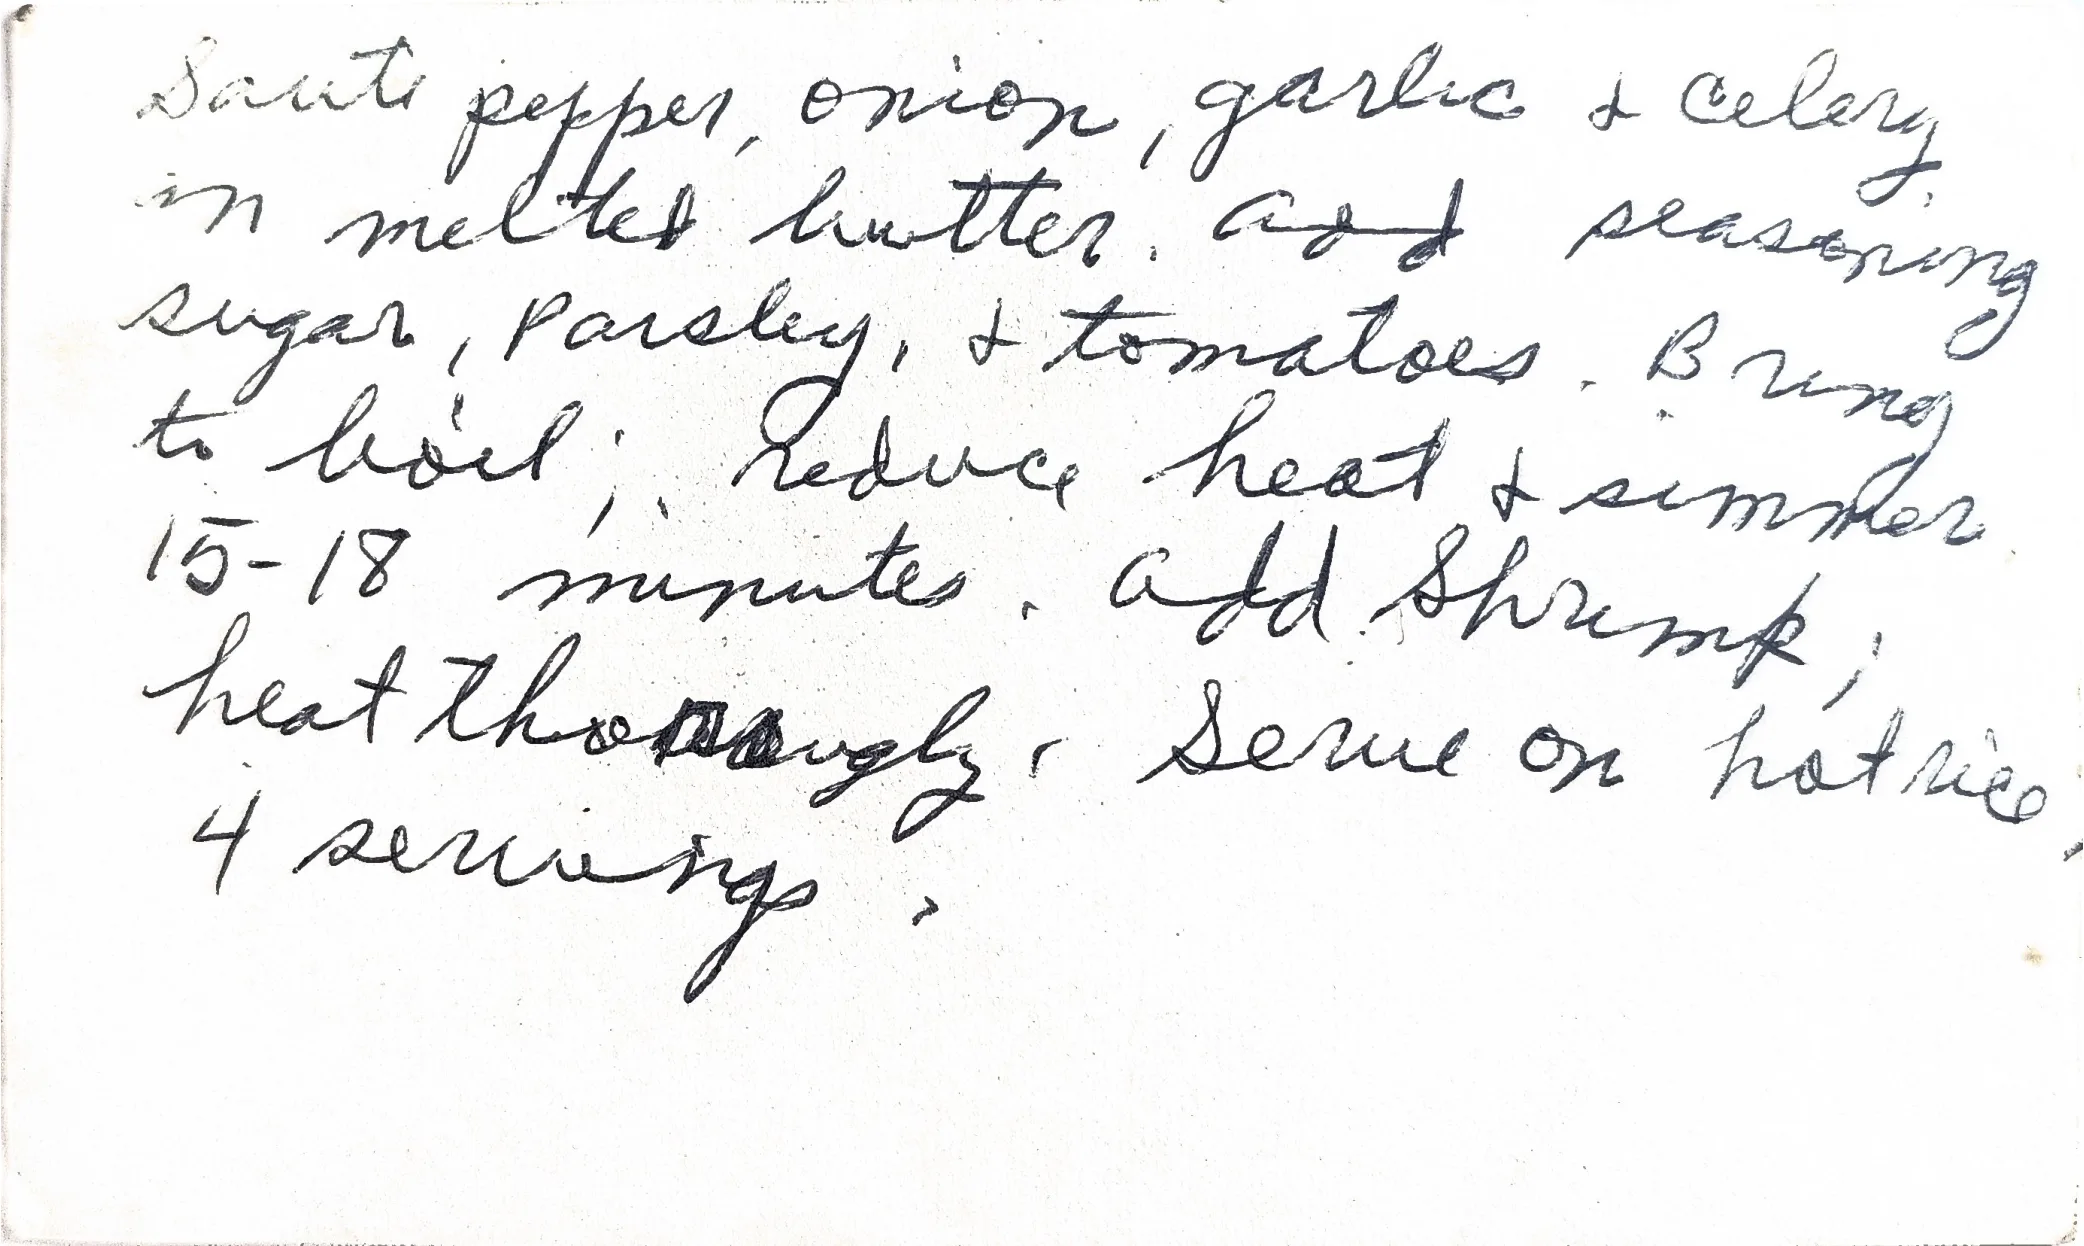 Saute pepper, onion, garlic & celery
in melted butter. add seasoning
sugar, Parsley, & tomatoes. Bring
to boil; reduce heat & simmer
15-18 minutes. add Shrimp,
heat thoroughly. Serve on hot rice,
4 servings.